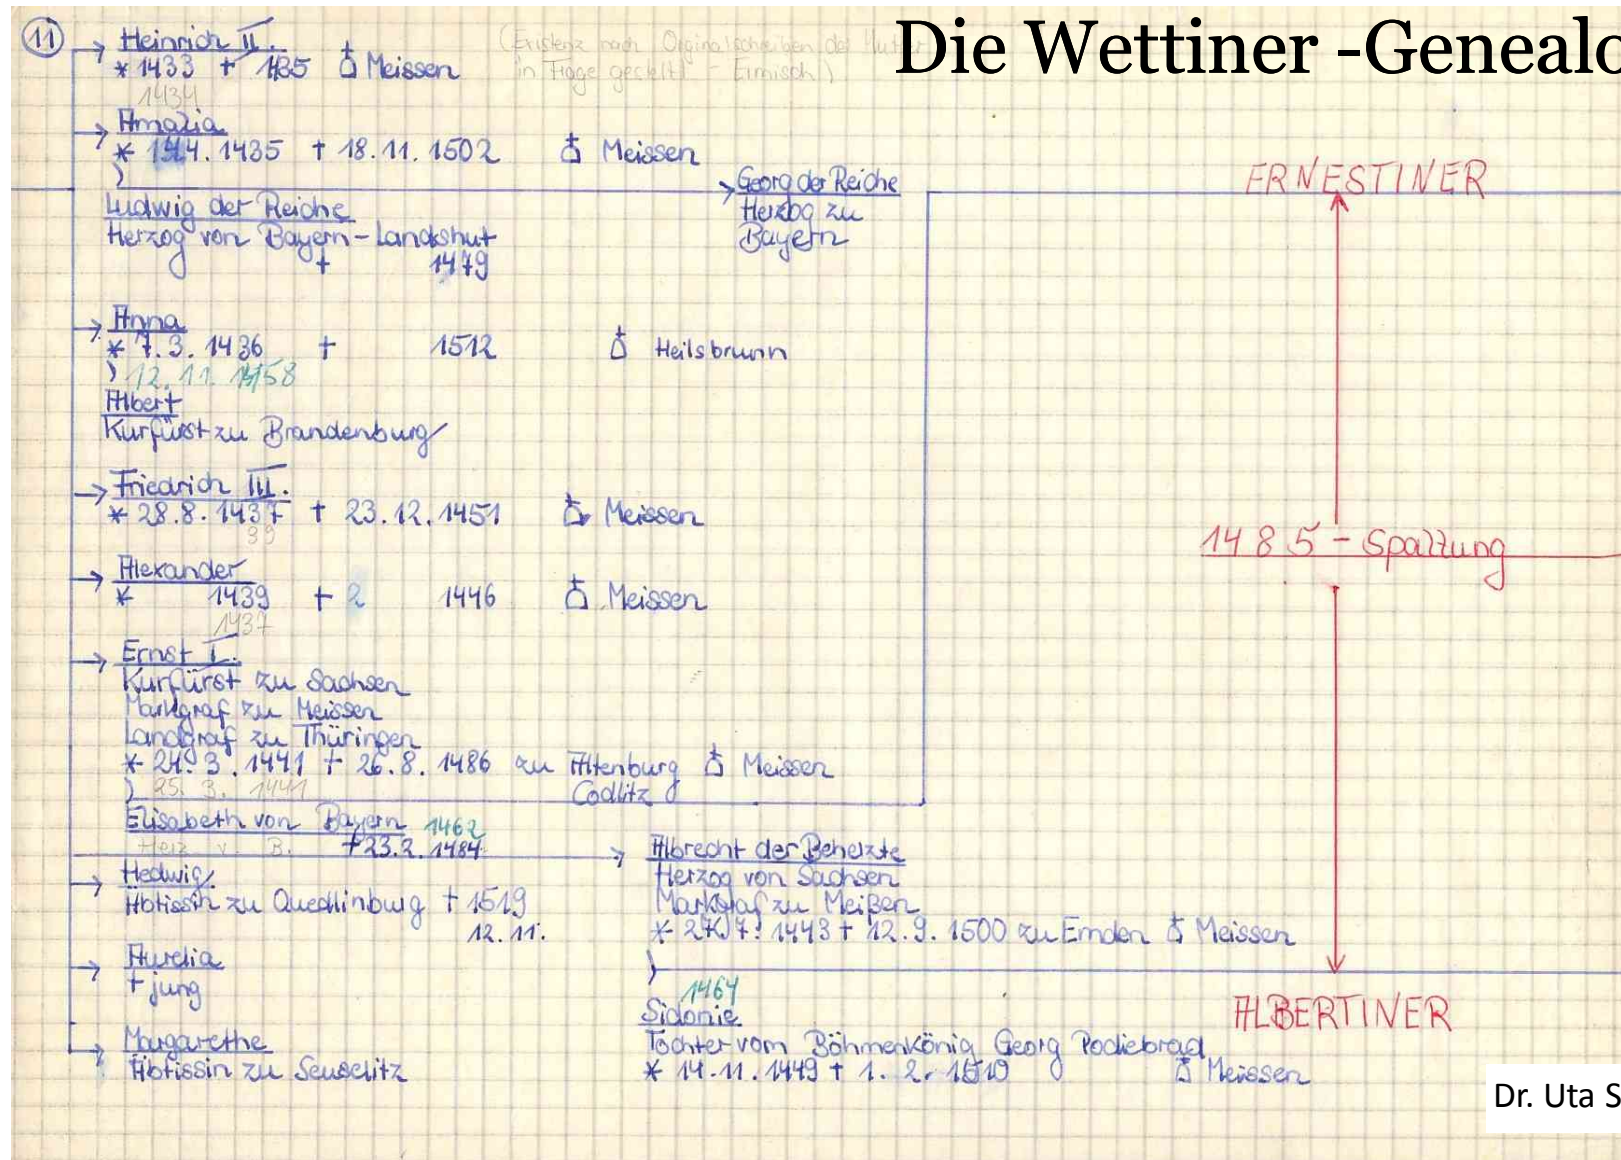 Die Wettiner -Genealo
11
Heinrich II.
* 1433 + 1435 Meissen
1434
(Existenz nach Orginalschreiben der Mutter
in Frage gestellt - Ermisch)
Amalia
* 4.4.1435 + 18.11.1502 Meissen
)
Ludwig der Reiche
Herzog von Bayern-Landshut
+ 1479
Georg der Reiche
Herzog zu
Bayern
Anna
* 7.3.1436 + 1512 Heilsbrunn
) 12.11.1458
Albert
Kurfürst zu Brandenburg
Friedrich III.
* 28.8.1437 + 23.12.1451 Meissen
39
Alexander
* 1439 + 2 1446 Meissen
1437
Ernst I.
Kurfürst zu Sachsen
Markgraf zu Meissen
Landgraf zu Thüringen
* 24.3.1441 + 26.8.1486 zu Altenburg Meissen
) 25.3.1441 Codlitz
Elisabeth von Bayern 1462
Herz v. B. +23.2.1484
Hedwig
Äbtissin zu Quedlinburg + 1519
12.11.
Aurelia
+ jung
Margarethe
Äbtissin zu Seuselitz
Albrecht der Beherzte
Herzog von Sachsen
Markgraf zu Meißen
* 27.7.1443 + 12.9.1500 zu Emden Meissen
)
1464
Sidonie
Tochter vom Böhmenkönig Georg Podiebrad
* 14.11.1449 + 1.2.1510 Meissen
ERNESTINER
1485 - Spaltung
ALBERTINER
Dr. Uta S